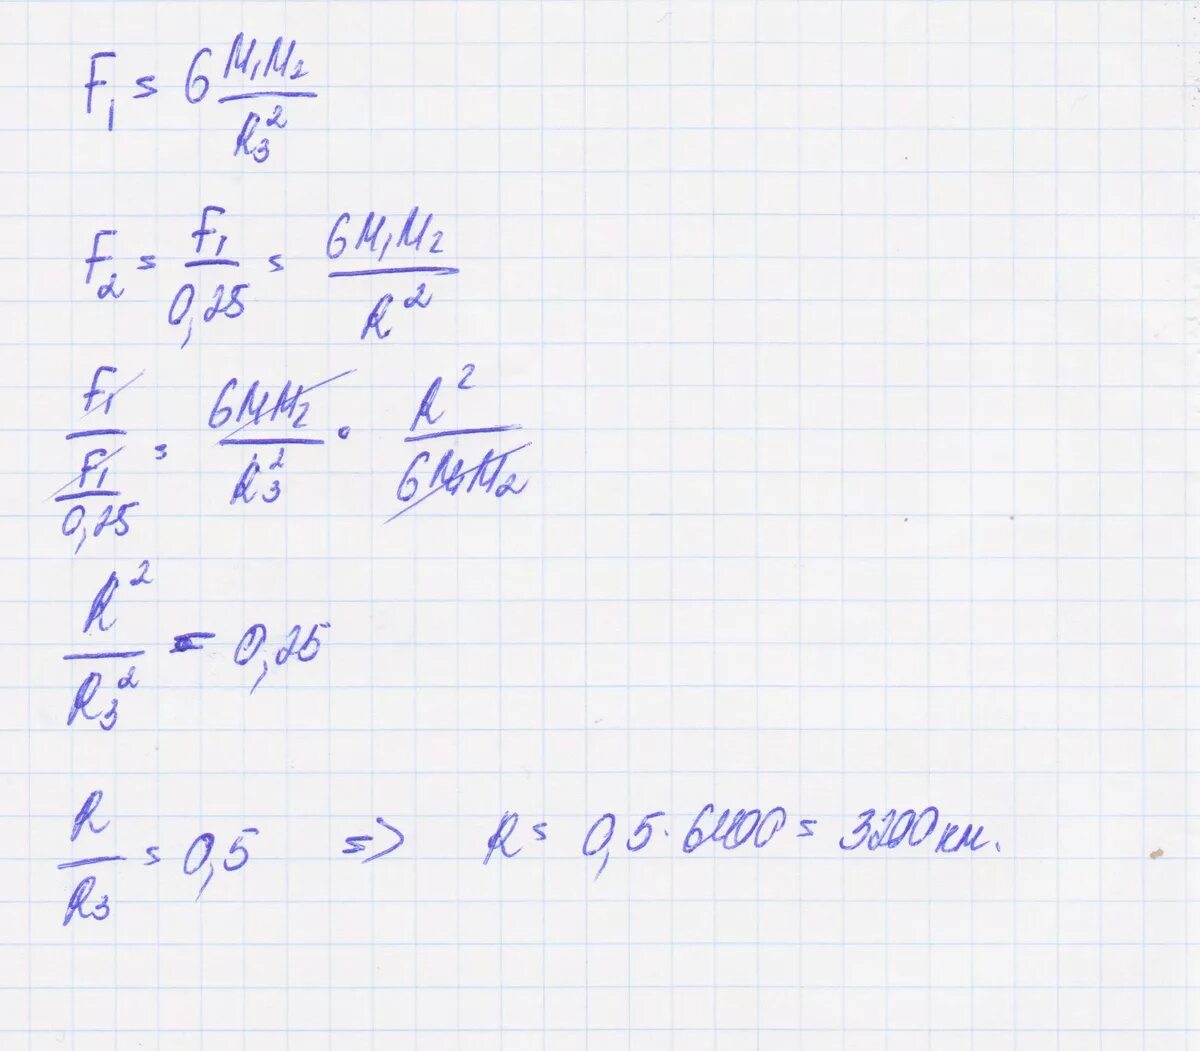 F₁ = G M₁M₂ / R₃²
F₂ = F₁ / 0,25 = G M₁M₂ / R²
F₁ / (F₁ / 0,25) = G M₁M₂ / R₃² · R² / G M₁M₂
R² / R₃² = 0,25
R / R₃ = 0,5 => R = 0,5 · 6400 = 3200 км.